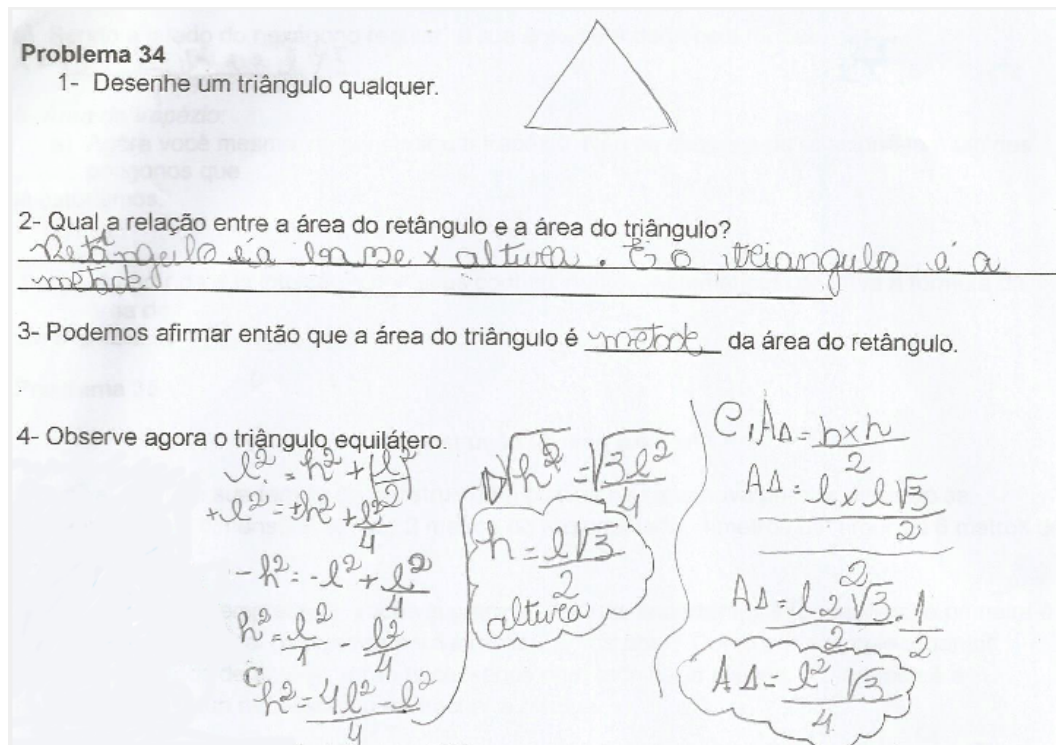 Problema 34
1- Desenhe um triângulo qualquer.
2- Qual a relação entre a área do retângulo e a área do triângulo?
Retângulo é a base x altura. E o triangulo é a
metade
3- Podemos afirmar então que a área do triângulo é metade da área do retângulo.
4- Observe agora o triângulo equilátero.
l² = h² + (l/2)²
+l² = +h² + l²/4
-h² = -l² + l²/4
h² = l²/1 - l²/4
h² = 4l² - l²/4
√h² = √3l²/4
h = l√3/2
altura
A∆ = b x h/2
A∆ = l x l√3/2/2
A∆ = l2√3/2 . 1/2
A∆ = l²√3/4